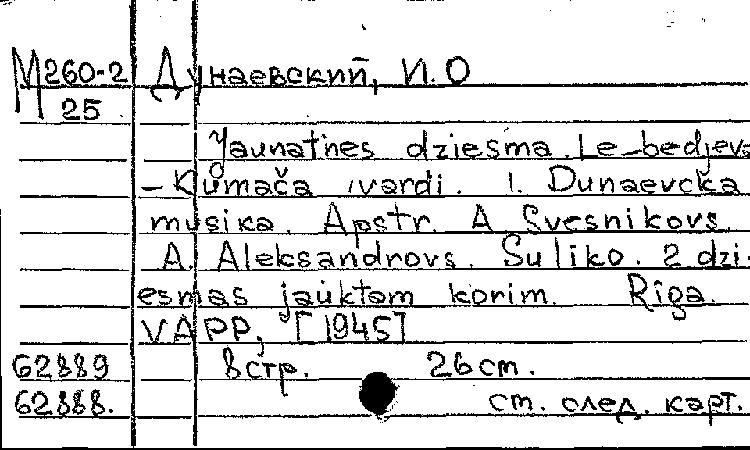 М260-2 Дунаевский, И.О
25
Jaunatnes dziesma. Le-bedjeva
-Kumača vārdi. I. Dunaevcka
musika. Apstr. A Svesnikovs
A. Aleksandrovs. Suliko. 2 dzi-
esmas jauktam korim. Riga.
VAPP, [1945]
62889 8 стр. 26 cm.
62888. см. след. карт.